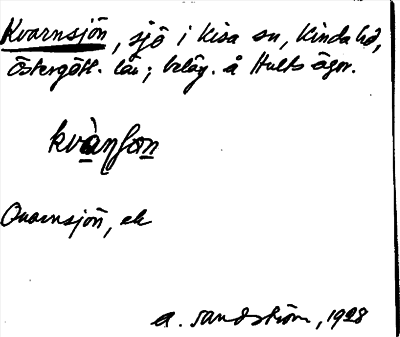 Kvarnsjön, sjö i Kisa sn, Kinda hd,
Östergötl. län; beläg. å Hults ägor.
kvà̱ṉʃo̱n
Qvarnsjön, ek
A. Sandström, 1928